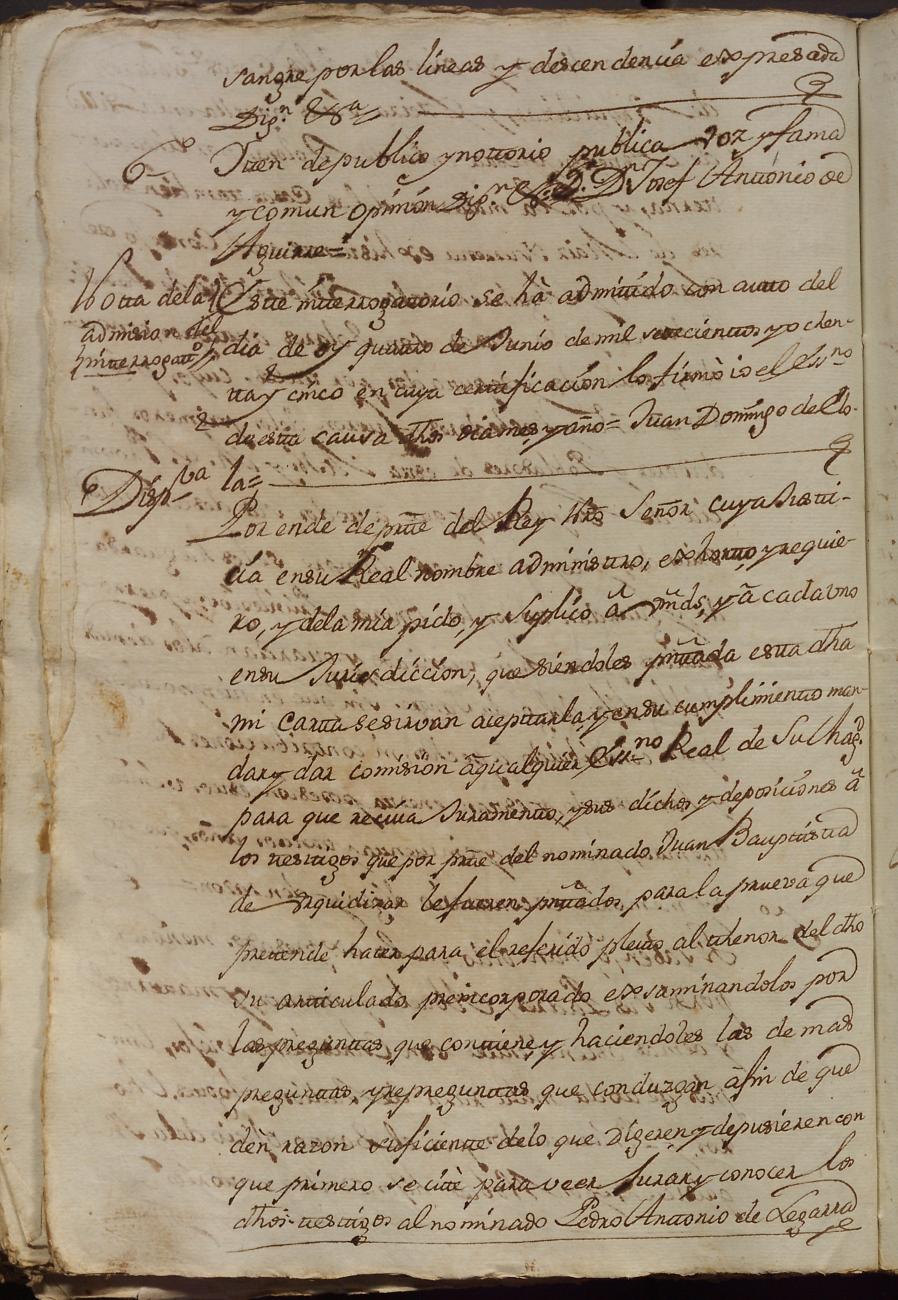 sangre por las lineas y descendencia expresada
Digⁿ &ª
6º Iten de publico y nottorio publica voz y fama
y comun opinion Digⁿ &ª Dⁿ Josef Antonio de
Aguirre=
Notta dela admision del interrogattº
Este interrogatorio se ha admitido con autto del
dia de oy quattro de Junio de mil setecientos y ochen-
tta y cinco en cuya certificación lo firmò io el Essⁿº
de esta causa dhos dia mes, y año= Juan Domingo de Elo-
la=
Dispᵗᵛᵃ
Por ende de ptte del Rey Nrô Señor cuya Justi-
cia en su Real nombre administro, exhorto, y requie-
ro, y dela mia pido, y suplico â mds, y â cada uno
en su Jurisdiccion, que siendoles pnttada esta dha
mi carta se sirvan aceptarla, y en su cumplimiento man-
dar y dar comision âqualquier Essⁿº Real de Su Magᵈ
para que reciva Juramento, y sus dichos y deposiciones â
los testigos que por ptte del nominado Juan Bauptista
de Urquidizar le fueren pnttados, para la prueva que
pretende hacer para el referido pleito al thenor del dho
su articulado preincorporado exsaminandolos por
las preguntas, que contiene y haciendoles las demas
preguntas, y repreguntas que conduzgan âfin de que
den razon suficiente delo que Digeren y depusieren con
que primero se cite para veer Jurar y conocer los
dhos testigos al nominado Pedro Antonio de Legarra